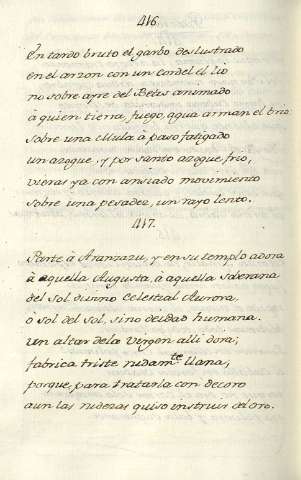 416.
En tardo bruto el garbo deslustrado
en el arzon con un cordel el lio
no sobre ayre del Betis animado
à quien tierra, fuego, agua arman el brio
sobre una Mula à paso fatigado
un azogue, y por santo azogue, frio,
vieras ya con ansiado movimiento
sobre una pesadez, un rayo lento.
417.
Parte à Aranzazu, y en su templo adora
à aquella Augusta, à aquella soberana
del Sol divino Celestial Aurora
ò sol del sol, sino deidad humana.
Un altar dela Virgen alli dora;
fabrica triste rudamte llana;
porque, para tratarla con decoro
aun las rudezas quiso instruir del oro.